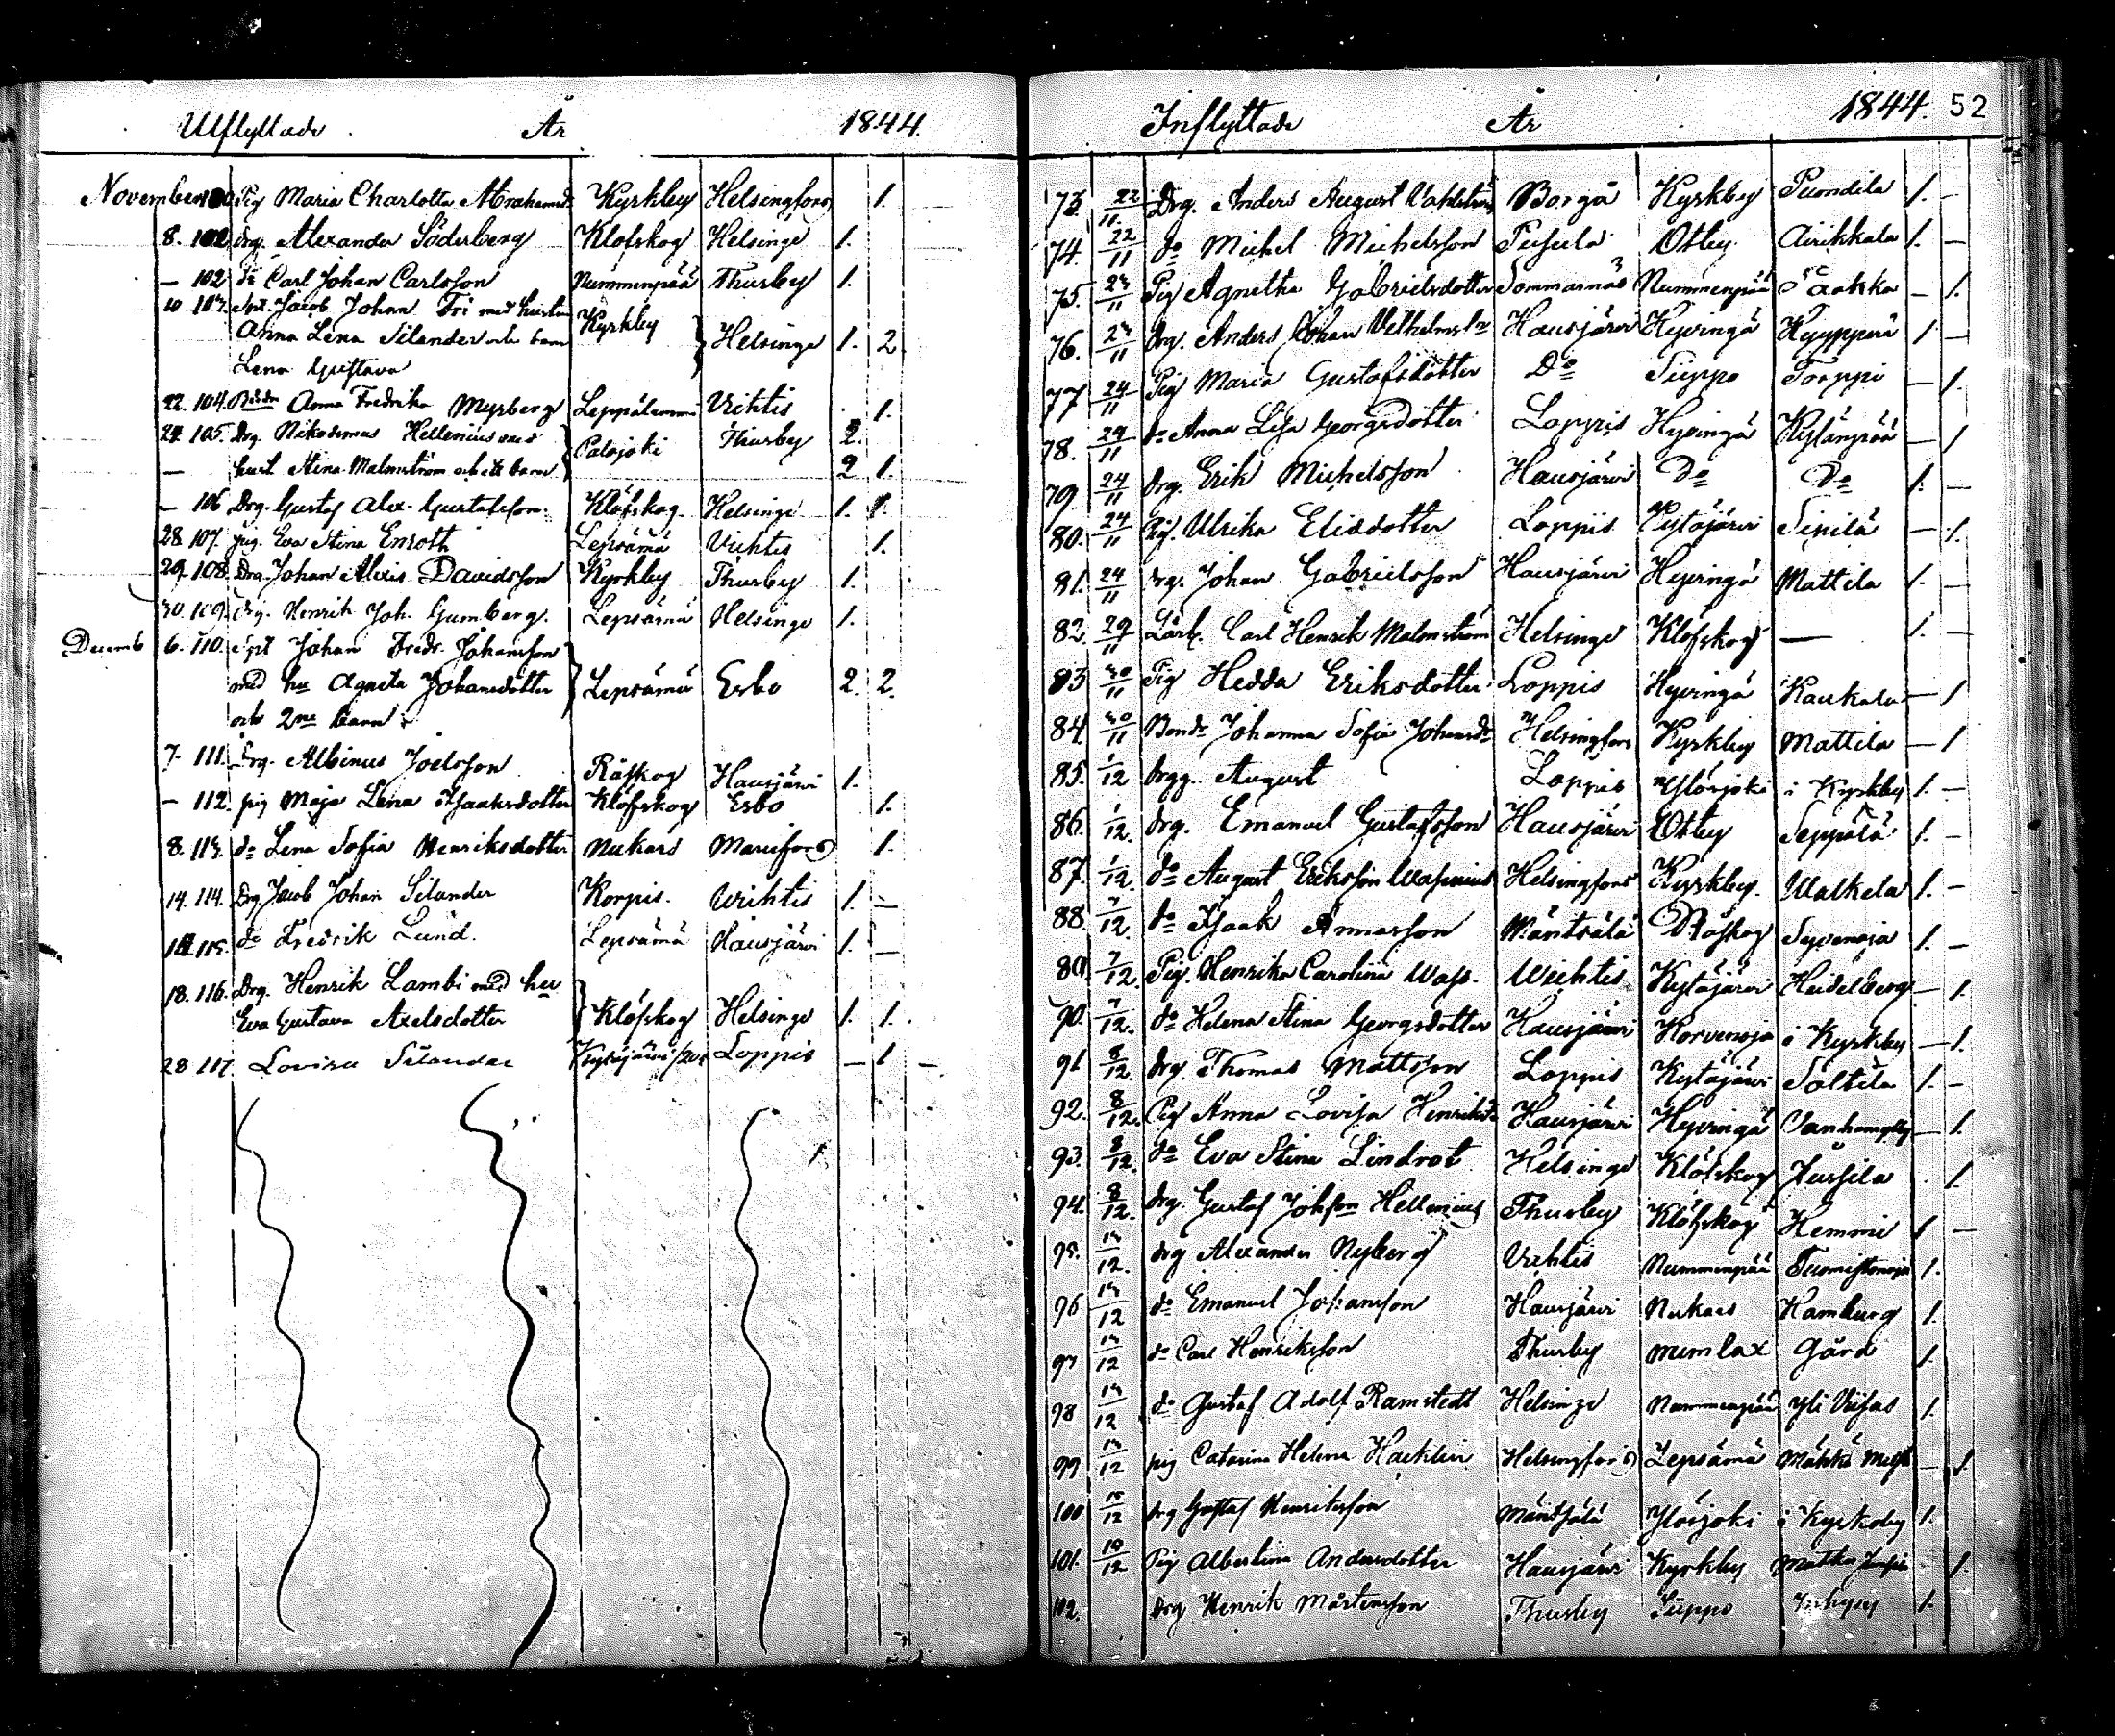 Utflyttade År 1844.
November 100. Pig Maria Charlotta Abrahamsd. Kyrkby Helsingfors 1.
8. 101. drg. Alexander Söderberg Klöfskog Helsinge 1.
— 102 do Carl Johan Carlsson Nummenpää Thusby 1.
10 103. Spt. Jacob Johan Fri med hustru
Anna Lena Silander och barn Kyrkby Helsinge 1. 2.
Lena Gustava
22. 104. Anna Fredrika Myrberg Leppälammi Vichtis 1.
24. 105. Drg. Nikodemus Hellenius med Palojoki Thusby 2.
— hust. Stina Malmström och ett barn 2 1.
— 106 Drg. Gustaf Alex. Gustafsson Klöfskog Helsinge 1. 1.
28 107. pig. Eva Stina Enroth Lepsämä Vichtis 1.
29. 108. Drg. Johan Alexis Davidsson Kyrkby Thusby 1.
30. 109. drg. Henrik Joh. Gumberg. Lepsämä Helsinge 1.
Decemb 6. 110. Spt Johan Fredr. Johansson
med hu Agneta Johansdotter Lepsämä Esbo 2. 2.
och 2ne barn
7. 111. Drg. Albinus Joelsson Råskog Hausjärvi 1.
— 112. pig Maja Lena Isaaksdotter Klöfskog Esbo 1.
8. 113. do Lena Sofia Henriksdotter Nukars Mariefors 1.
14. 114. Drg Jacob Johan Silander Korpis. Wichtis 1. —
115. do Fredrik Lund. Lepsämä Hausjärvi 1. —
18. 116. Drg. Henrik Lambi med hu
Eva Gustava Axelsdotter Klöfskog Helsinge 1. 1.
28 117. Lovisa Silander Kytäjärvi Loppis — 1 —
Inflyttade År 1844. 52
73. 22/11 Drg. Anders August Vahlström Borgå Kyrkby Puondila 1. —
74. 22/11 do Michel Michelsson Pusula Otby Airikkala 1. —
75. 23/11 Pig Agnetha Gabrielsdotter Sommarnäs Nummenpää — 1.
76. 23/11 Drg. Anders Johan Vilhelmsson Hausjärvi Hyvingä Hyyppärä 1 —
77 24/11 Pig Maria Gustafsdotter Do Suppo Toappi — 1.
78. 24/11 do Anna Lisa Georgsdotter Loppis Hyvingä Kylänpää — 1
79 24/11 drg. Erik Michelsson Hausjärvi Do Do 1. —
80. 24/11 Pig. Ulrika Eliædotter Loppis Kytäjärvi Sipilä — 1.
81. 24/11 drg. Johan Gabrielsson Hausjärvi Hyvingä Mattila 1. —
82. 29/11 Lärl. Carl Henrik Malmström Helsinge Klöfskog — 1. —
83 30/11 Pig Hedda Eriksdotter Loppis Hyvingä Kaukala — 1
84. 30/11 Bondr Johanna Sofia Johansdr Helsingfors Kyrkby Mattila — 1
85. 1/12 drgg. August Loppis Ylösjoki i Kyrkby 1. —
86. 1/12. drg. Emanuel Gustafsson Hausjärvi Otby Seppälä 1. —
87. 1/12. do August Eriksson Wasenius Helsingfors Kyrkby. Walkela 1. —
88. 7/12. do Isaak Annasson Mäntsälä Råskog Syvenoja 1. —
89. 7/12. Pig. Henrika Carolina Wass. Wichtis Kytäjärvi Heidelberg — 1.
90. 7/12. do Helena Stina Georgsdotter Hausjärvi Korvenoja i Kyrkby — 1.
91 8/12. drg. Thomas Mattsson Loppis Kytäjärvi Soltila 1. —
92. 8/12. Pig Anna Lovisa Henriksdr Hausjärvi Hyvingä Vanhamylly — 1.
93. 8/12. do Eva Stina Lindrot Helsinge Klöfskog Jussila 1.
94. 8/12. drg. Gustaf Johsson Hellenius Thusby Klöfskog Hemmi 1 —
95. 13/12. drg Alexander Nyberg Vichtis Nummenpää Tuomistonoja 1.
96 13/12 do Emanuel Johansson Hausjärvi Nukars Hamburg 1.
97 13/12 do Carl Henriksson Thusby Numlax Gård 1.
98 13/12 do Gustaf Adolf Ramstedt Helsinge Nummenpää Yli Uusas 1.
99 13/12 pig Catarina Helena Hacklin Helsingfors Lepsämä — 1.
100 15/12 drg Gustaf Henriksson Mäntsälä Ylösjoki i Kyrkoby 1.
101. 15/12 Pig Albertina Andersdotter Hausjärvi Kyrkby 1.
102. Drg Henrik Mårtensson Thusby Suppo 1.